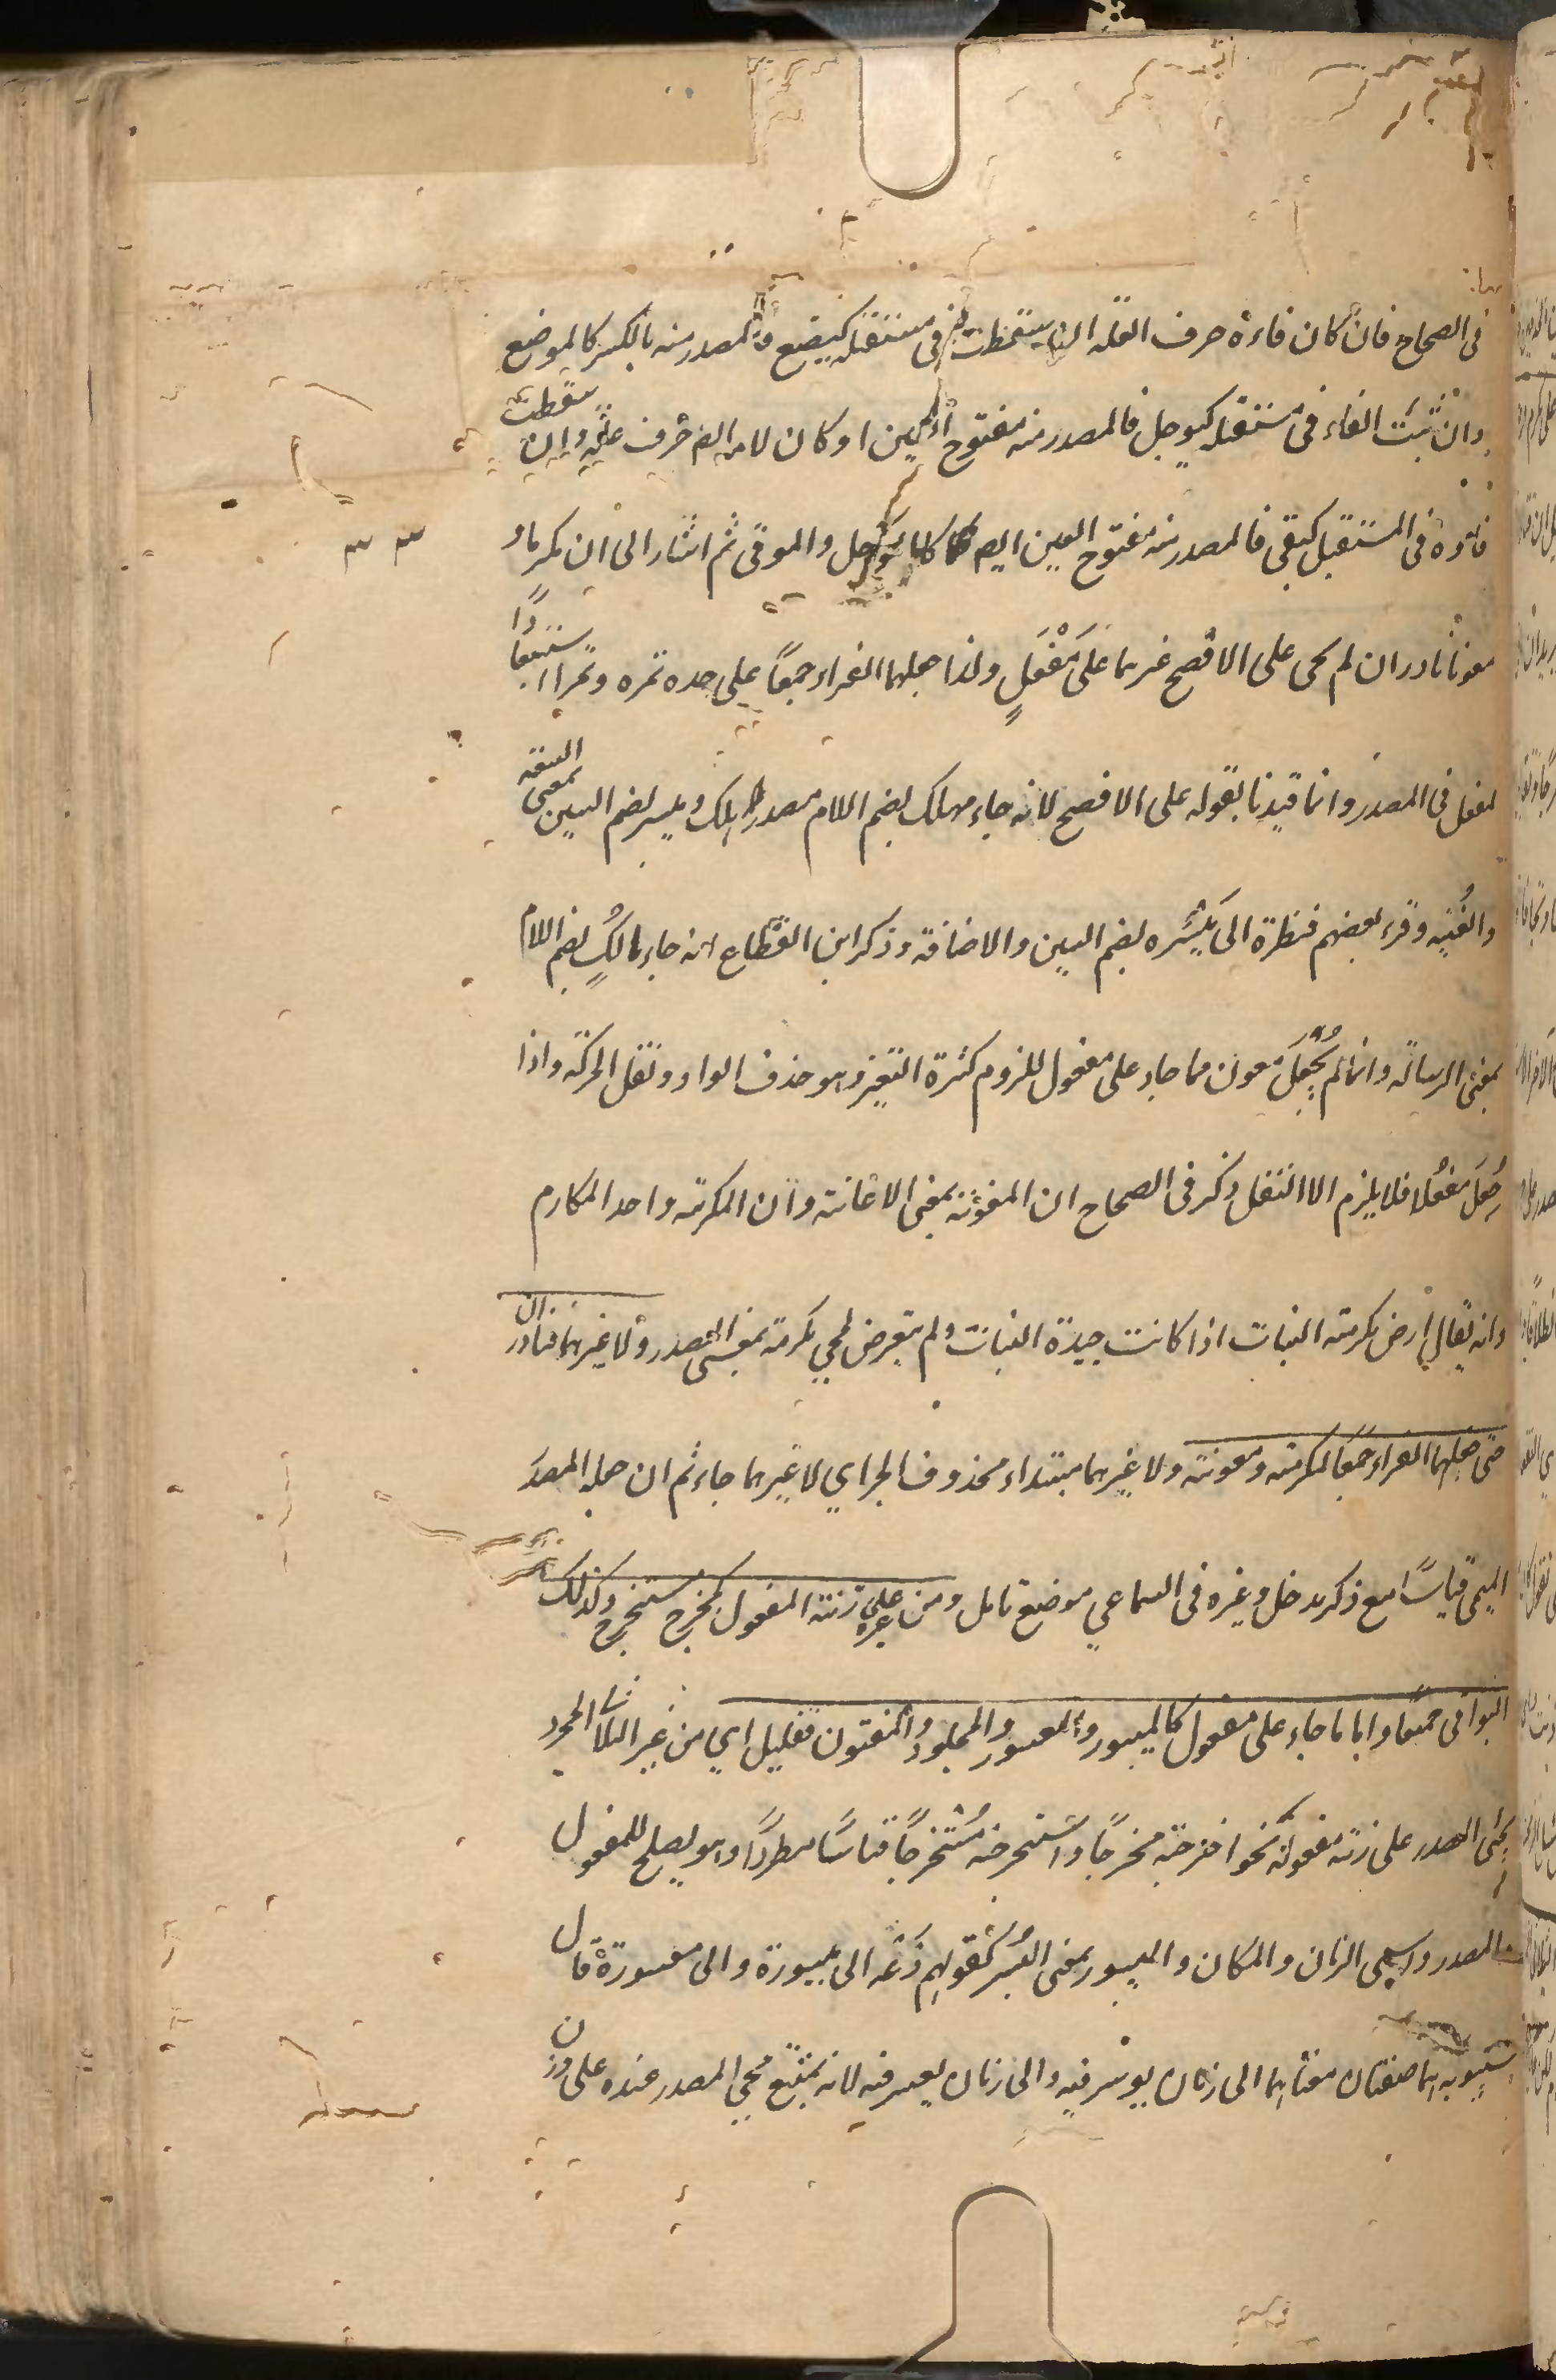 فى الصحاح فان كان فاءه حرف العلة التى سقطت فى مستقبله كيضع فالمصدر منه بالكسر كالموضع
وان ثبتت الفاء فى مستقبله كيوجل فالمصدر منه مفتوح العين او كان لامه ايضا حرف علة وان سقطت
فاؤه فى المستقبل كيقى فالمصدر منه مفتوح العين ايضا كالموجل والموقى ثم اشار الى ان مكرما و
معونا نادران لم يجى على الافصح غيرهما على مَفْعَلٍ ولذا جعلهما الفراء جمعًا على حده تمره وتمرا استبعادًا
لمفعل فى المصدر وانما قيدنا بقوله على الافصح لانه جاء مهلك بضم اللام مصدر هلك وميسر بضم السين بمعنى السعة
والغُنيه وقرء بعضهم فنظرة الى مَيْسُره بضم السين والاضافة وذكر ابن القطاع انه جاء مالُك بضم اللام
بمعنى الرسالة وانما لم يُجْعَلَ معون مما جاء على مفعول للزوم كثرة التغير وهو حذف الواو ونقل الحركة واذا
جُعِلَ مفعُلا فلا يلزم الا النقل ذكر فى الصحاح ان المعونة بمعنى الاعانة وان المكرمة واحد المكارم
وانه يقال ارض مكرمة النبات اذا كانت جيدة النبات ولم يتعرض لمجى مكرمة بمعنى المصدر ولا غيرهما نادران
حتى جعلهما الفراء جمعًا لمكرمة ومعونة ولا غيرهما مبتداء محذوف الخبر اي لا غيرهما جاء ثم ان جعله المصدر
الميمى قياسًا مع ذكر مدخل وغيره فى السماعي موضع تامل ومن غيره على زنة المفعول كمخرج مستخرج وكذلك
البواقى جمعًا واما ما جاء على مفعول كالميسور والمعسور والمجلود والمفتون فقليل اي من غير الثلاثى المجرد
يجئى المصدر على زنة مفعوله نحو اخرجته مخرجًا واستخرجته مُسْتخرجًا قياسًا مطردًا وهو يصلح للمفعول
والمصدر واسمى الزمان والمكان والميسور بمعنى اليُسْر كقولهم دَعْه الى ميسورة والى معسورة قال
سيبويه هما صفتان معناهما الى زمان يوسر فيه والى زمان يعسر فيه لانه يمتنع مجي المصدر عنده على وزن